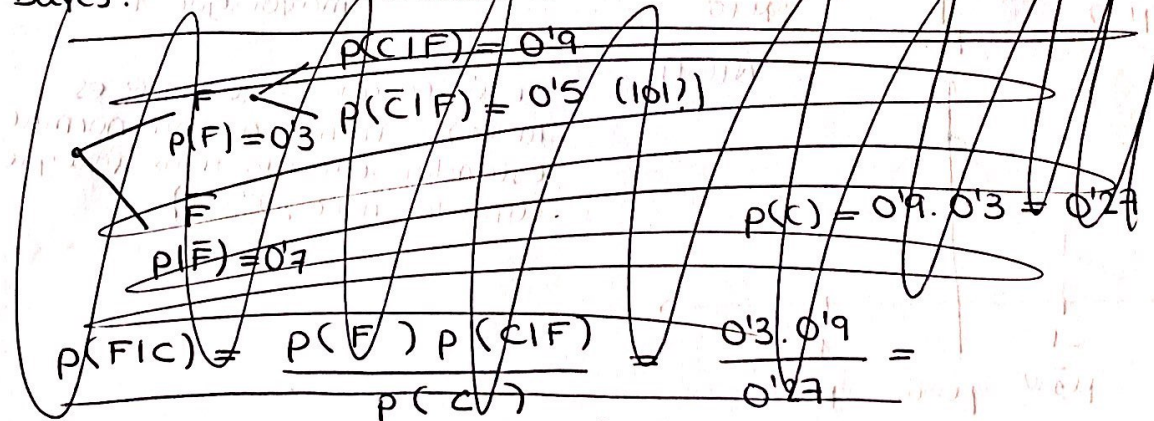 Bayes:
p(C|F) = 0'9
F
p(F) = 0'3
p(C̄|F) = 0'5 (¡0!?)
F̄
p(F̄) = 0'7
p(C) = 0'9 . 0'3 = 0'27
p(F|C) = p(F) p(C|F) / p(C) = 0'3 . 0'9 / 0'27 =